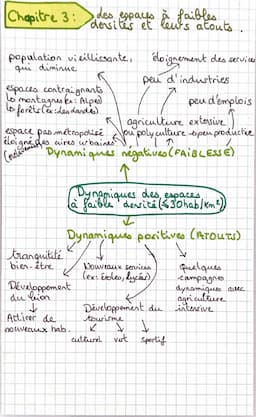 Chapitre 3 : des espaces à faibles
densités et leurs atouts.
population vieillissante,
qui diminue
éloignement des services
peu d'industries
espaces contraignants
la montagne (ex: Alpes)
la forêt (ex: les landes)
peu d'emplois
agriculture extensive
ou polyculture peu productive
espace pas métropolisé
éloigné des aires urbaines
Dynamiques négatives (FAIBLESSE)
Dynamiques des espaces
à faible densité (≤30hab/km²)
Dynamiques positives (ATOUTS)
tranquilité
bien-être
Nouveaux services
(ex: écoles, lycée)
Quelques
campagne
dynamiques avec
agriculture
intensive
Développement
du
Attirer de
nouveaux hab.
Développement du
tourisme
culturel vert sportif